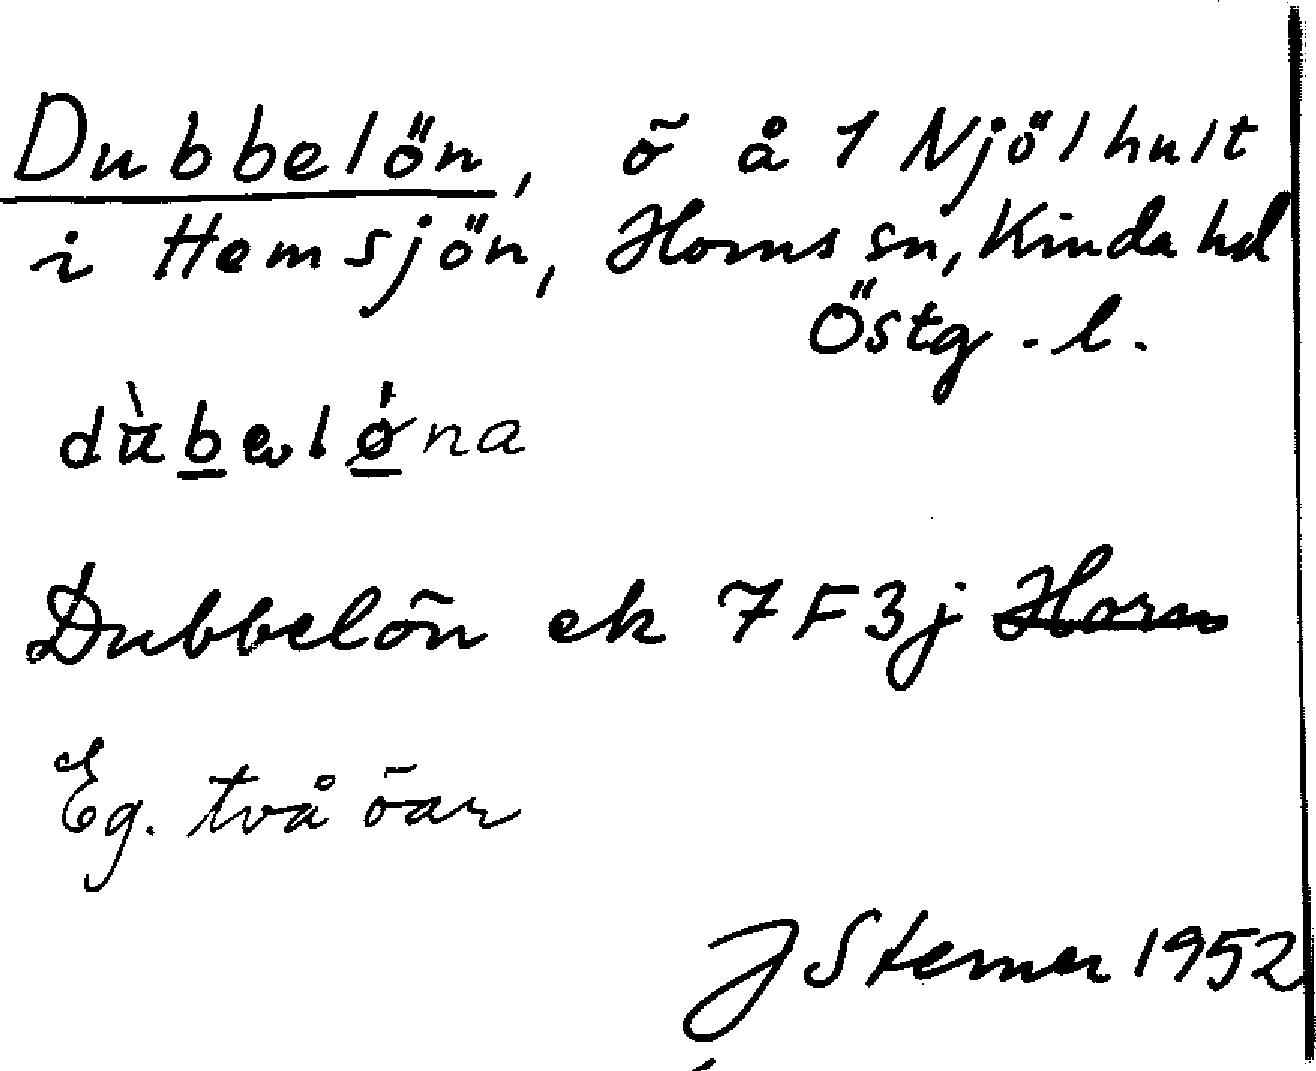 Dubbelön, ö å 1 Njölhult
i Hemsjön, Horns sn, Kinda hd
Östg. l.
Dubbelön ek 7F3j Horn
Eg. två öar
J Sterner 1952